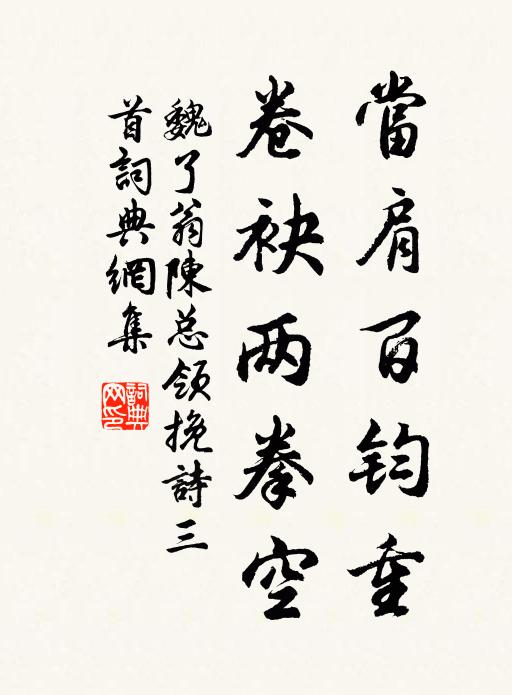 當肩百鈞重
卷袂两拳空
魏了翁陳总領挽詩三
首詞典網集
詞典
网印